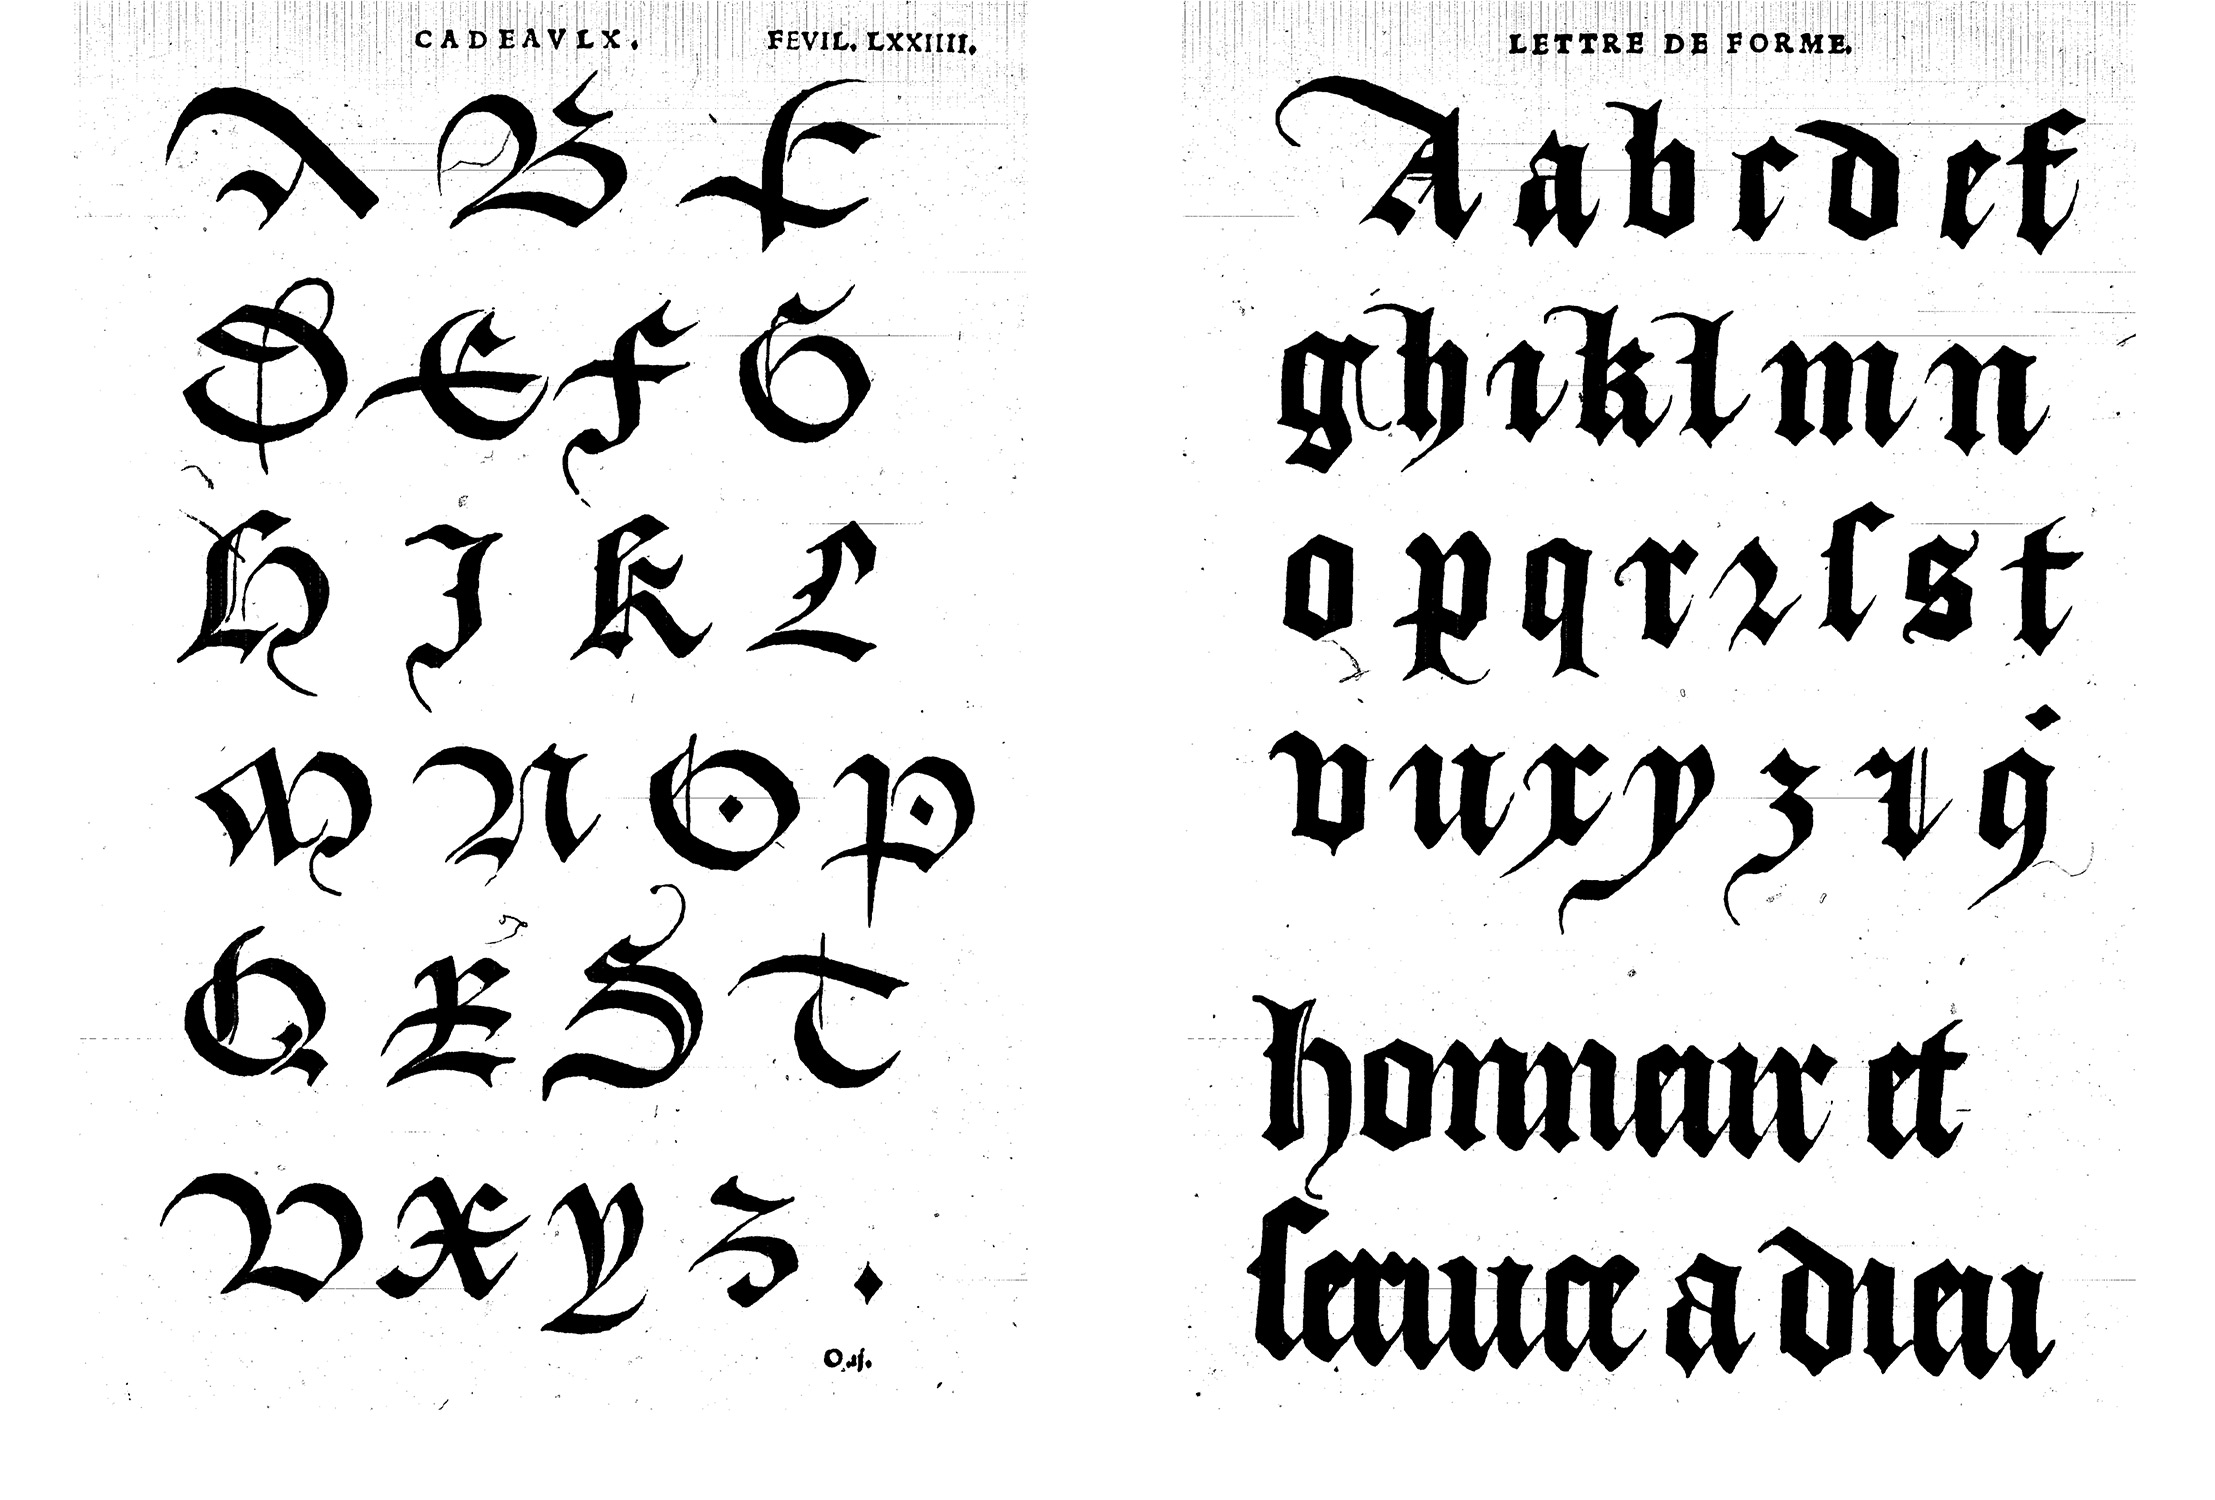 CADEAVLX. FEVIL. LXXIIII.
A B C
D E F G
H I K L
M N O P
Q R S T
V X Y Z .
O.ij.
LETTRE DE FORME.
A a b c d e f
g h i k l m n
o p q r ꝛ ſ s t
v u x y z
honneur et
ſeruice a dieu